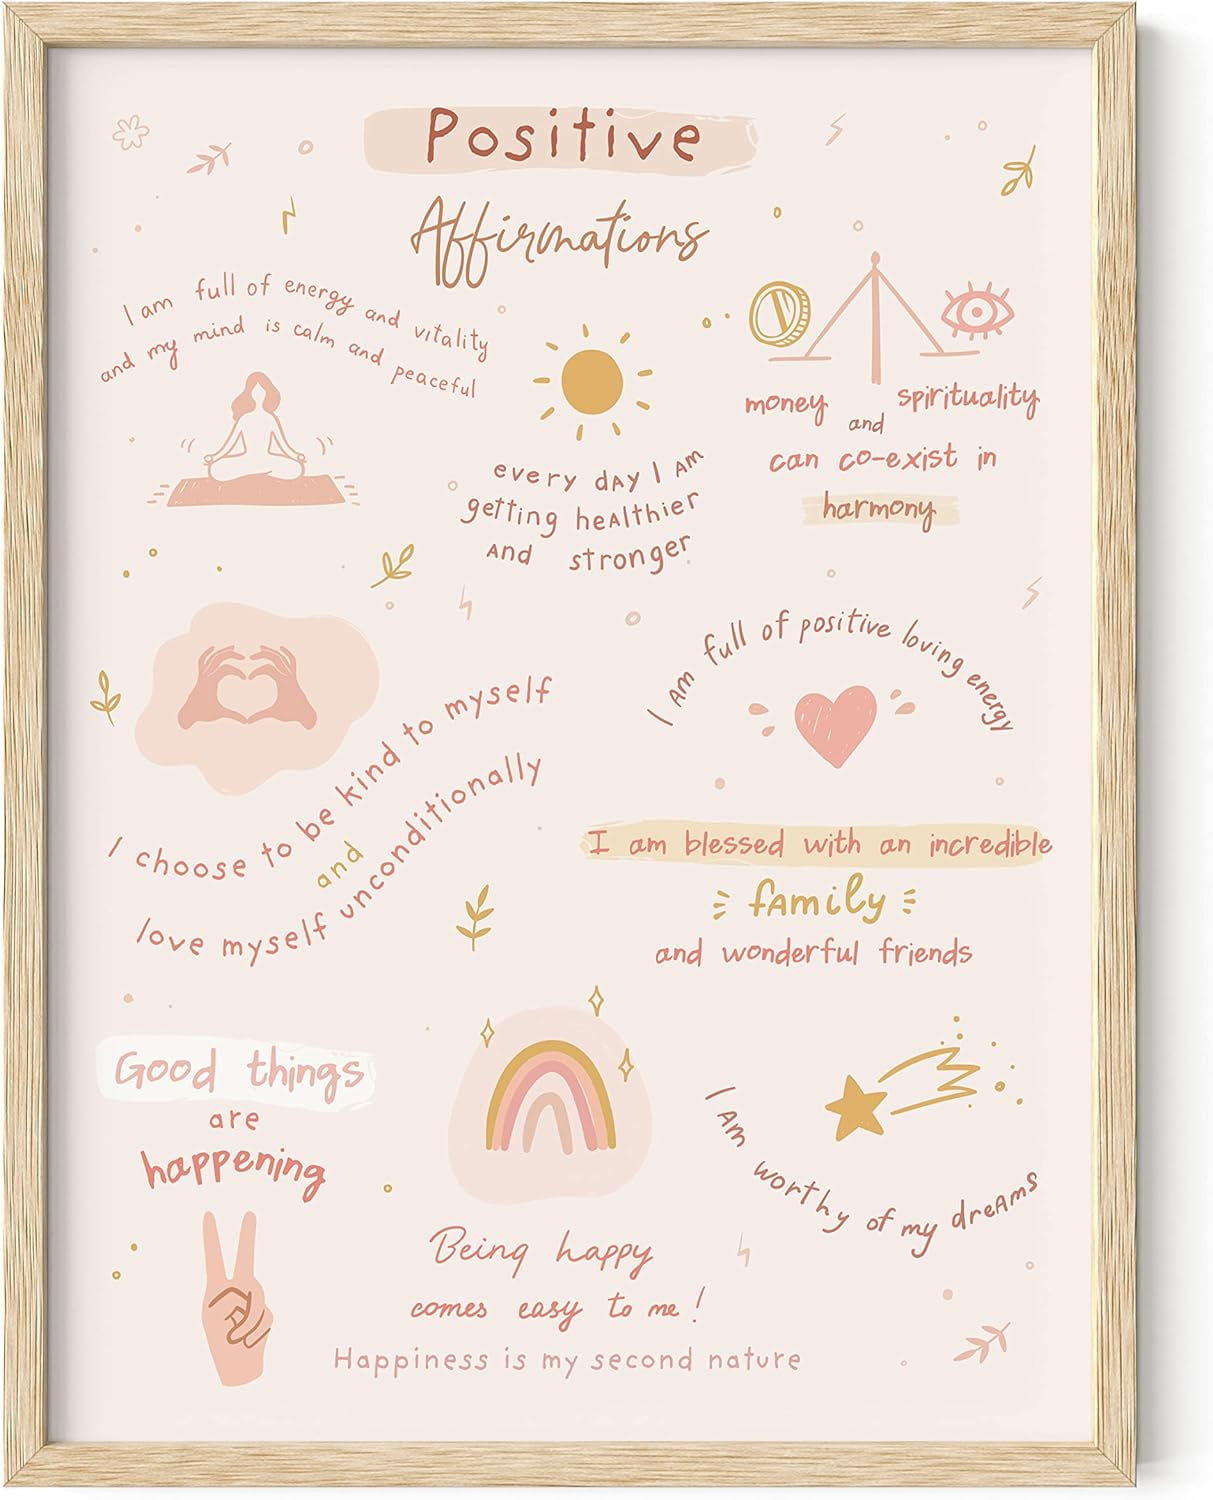 Positive
Affirmations
I am full of energy and vitality
and my mind is calm and peaceful
every day I AM
getting heAlthier
And stronger
money and spirituality
can co-exist in
harmony
I choose to be kind to myself
and
love myself unconditionally
I AM full of positive loving energy
I am blessed with an incredible
fAmily
and wonderful friends
Good things
are
happening
Being happy
comes easy to me!
Happiness is my second nature
I AM worthy of my dreAms